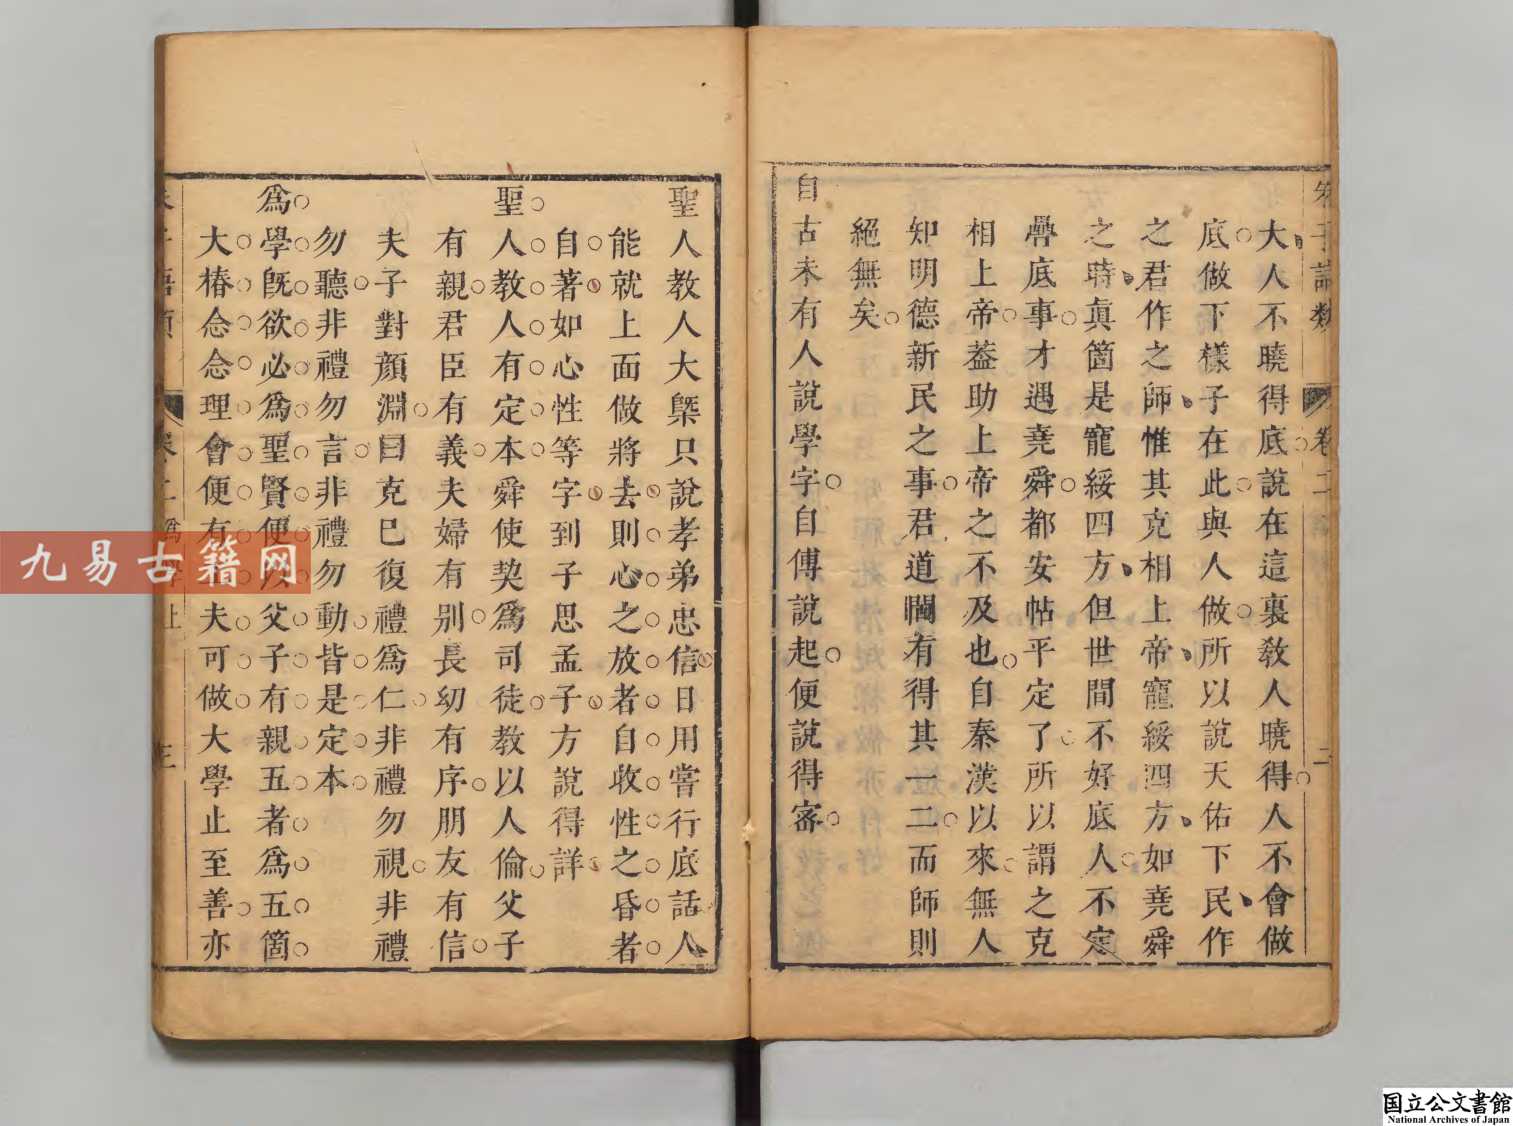 朱子語類 卷二 二
大人不曉得底說在這裏敎人曉得人不會做
底做下樣子在此與人做所以說天佑下民作
之君作之師惟其克相上帝寵綏四方如堯舜
之時眞箇是寵綏四方但世間不好底人不定
疊底事才遇堯舜都安帖平定了所以謂之克
相上帝葢助上帝之不及也自秦漢以來無人
知明德新民之事君道闗有得其一二而師則
絕無矣
自古未有人說學字自傅說起便說得審
聖人教人大槩只說孝弟忠信日用嘗行底話人
能就上面做將去則心之放者自收性之昏者
自著如心性等字到子思孟子方說得詳
聖人教人有定本舜使契爲司徒教以人倫父子
有親君臣有義夫婦有别長幼有序朋友有信
夫子對顔淵曰克巳復禮爲仁非禮勿視非禮
勿聽非禮勿言非禮勿動皆是定本
爲學旣欲必爲聖賢便 父子有親五者爲五箇
大樁念念理會便有 夫可做大學止至善亦
語類 卷二 爲學上 三
九易古籍网
国立公文書館
National Archives of Japan